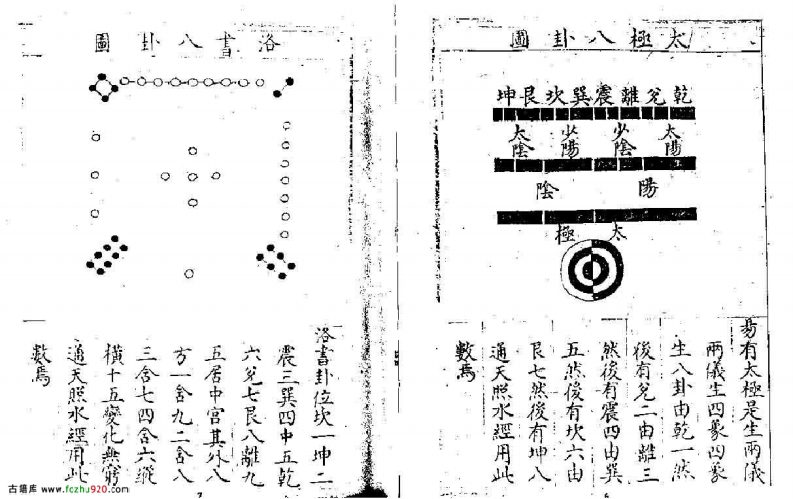 太極八卦圖
乾兌離震巽坎艮坤
太陽 少陰 少陽 太陰
陽 陰
太極
易有太極是生兩儀
兩儀生四象四象
生八卦由乾一然
後有兌二由離三
然後有震四由巽
五然後有坎六由
艮七然後有坤八
通天照水經用此
數焉
洛書八卦圖
洛書卦位坎一坤二
震三巽四中五乾
六兌七艮八離九
五居中宮其外八
方一含九二含八
三含七四含六縱
橫十五變化無窮
通天照水經用此
數焉
古籍库 www.fczhu920.com